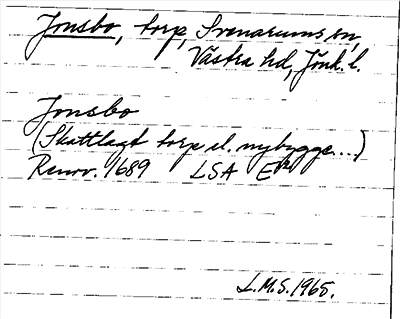 Jonsbo, torp, Svenarums sn,
Västra hd, Jönk. l.
Jonsbo
(Skattlagt torp el. nybygge...)
Renov. 1689 LSA
L.M.S. 1965.